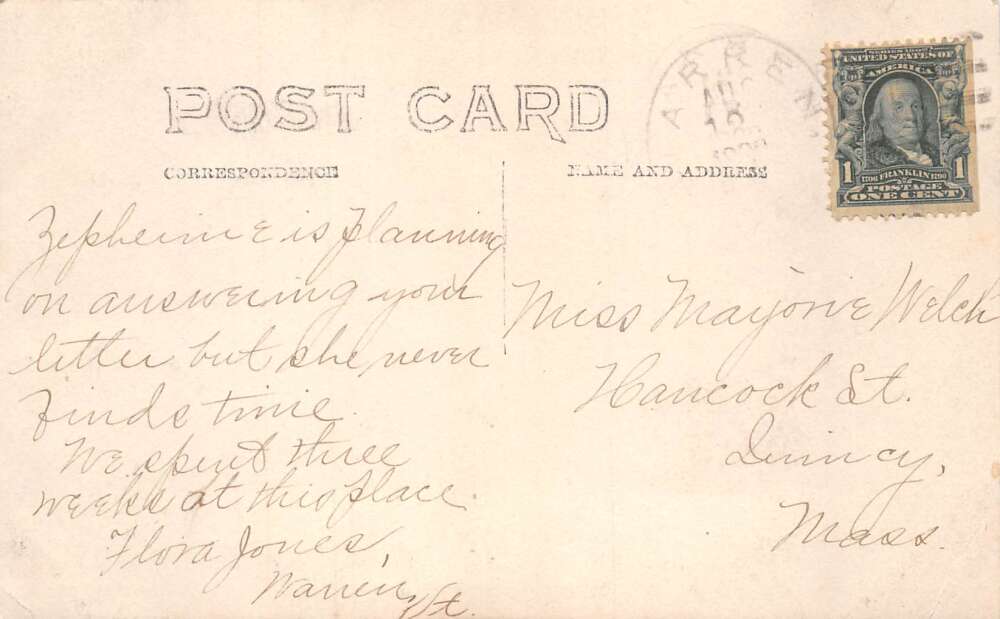 POST CARD
CORRESPONDENCE
NAME AND ADDRESS
WARREN
AUG
SERIES 1902
UNITED STATES OF
AMERICA
1 1706 FRANKLIN 1790 1
POSTAGE
ONE CENT
Zepherine is planning
on answering your
letter but she never
finds time.
We spent three
weeks at this place.
Flora Jones,
Warren, Vt.
Miss Marjorie Welch
Hancock St.
Quincy,
Mass.